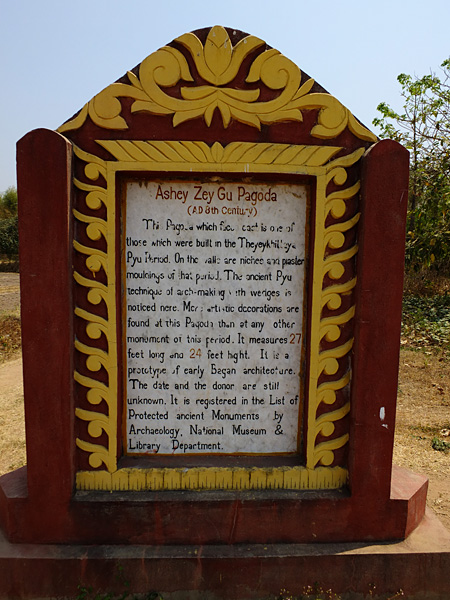 Ashey Zey Gu Pagoda
(AD 8th Century)
This Pagoda which faces east is one of
those which were built in the
Pyu Period. On the walls are niches and plaster
mouldings of that period. The ancient Pyu
technique of arch-making with wedges is
noticed here. More artistic decorations are
found at this Pagoda than at any other
monument of this period. It measures 27
feet long and 24 feet hight. It is a
prototype of early Bagan architecture.
The date and the donor are still
unknown. It is registered in the List of
Protected ancient Monuments by
Archaeology, National Museum &
Library Department.